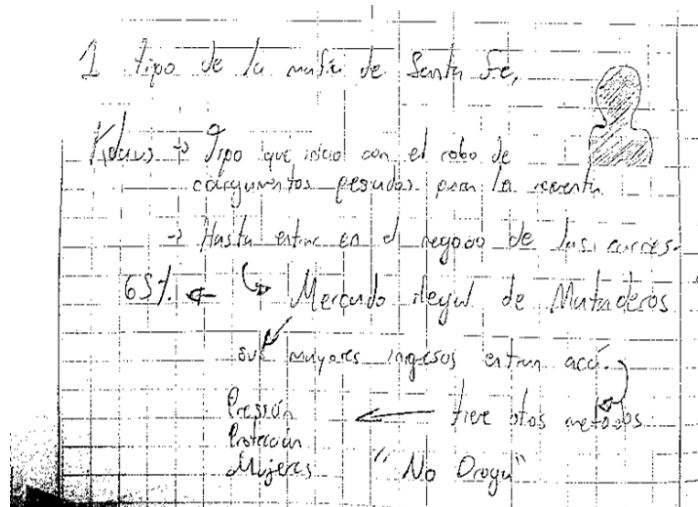 1 tipo de la mafia de Santa Fe,
Klaus → Tipo que inicio con el robo de
cargamentos pesados para la reventa
→ Hasta entrar en el negocio de las carnes.
65% ← ↳ Mercado ilegal de Mataderos
sus mayores ingresos entran acá.
Pressión ← tiene otros metodos
Protección
Mujeres "No Droga"